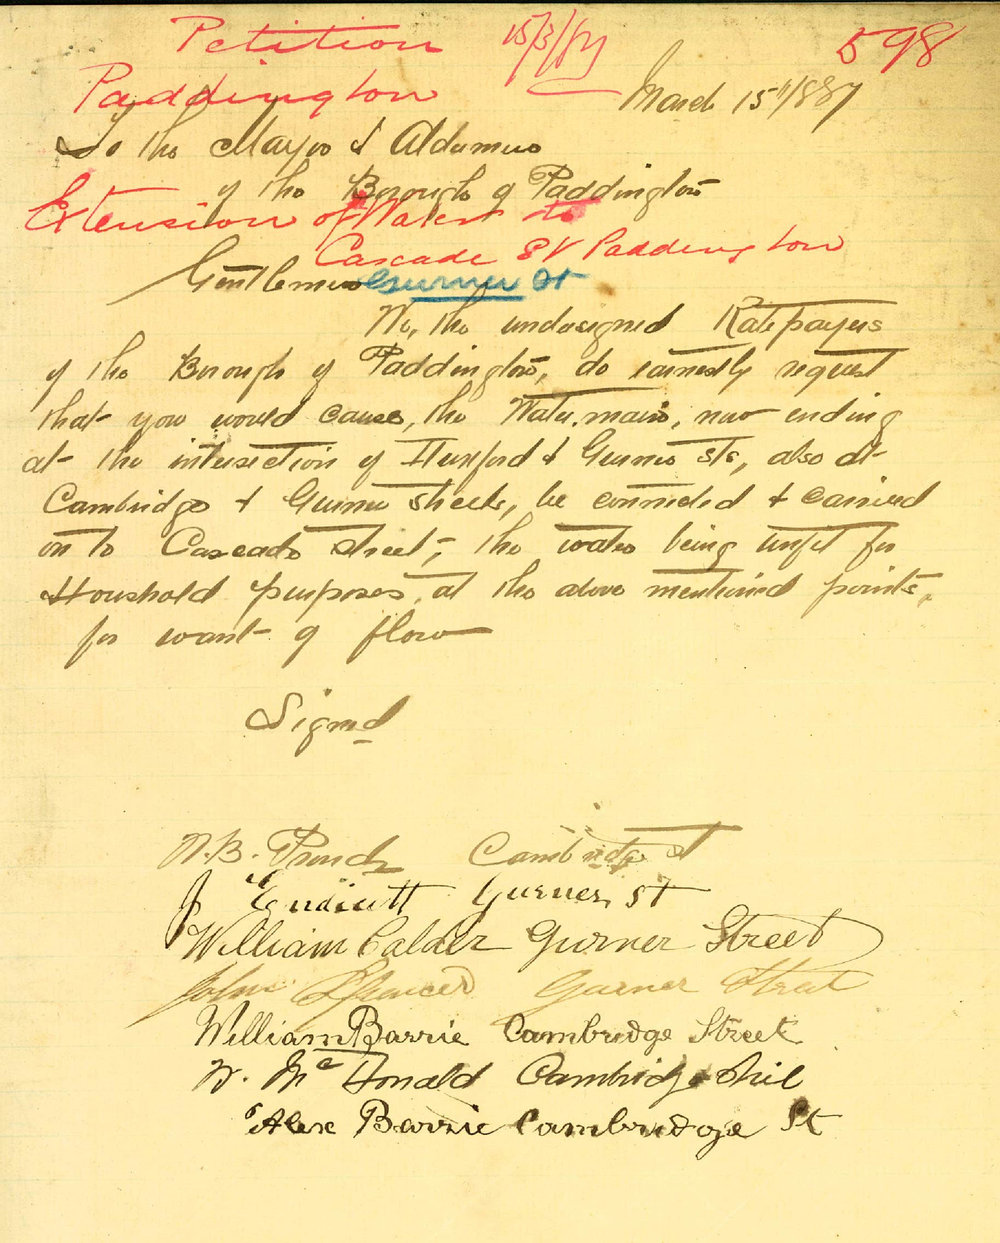 Petition 15/3/87 598
Paddington March 15th/1887
To the Mayor & Aldermen
of the Borough of Paddington
Extension of Water to
Cascade St Paddington
Gentlemen Gurner St
We, the undersigned Ratepayers
of the Borough of Paddington, do earnestly request
that you would cause, the Water main, now ending
at the intersection of & Gurner Sts, also at
Cambridge & Gurner Streets, be connected & carried
on to Cascade Street, the water being unfit for
Household purposes, at the above mentioned points,
for want of flow
Signed
W.B. Cambridge St
J Endicott Gurner St
William Calder Gurner Street
John Spencer Gurner Street
William Barrie Cambridge Street
W. McDonald Cambridge
Alex Barrie Cambridge St